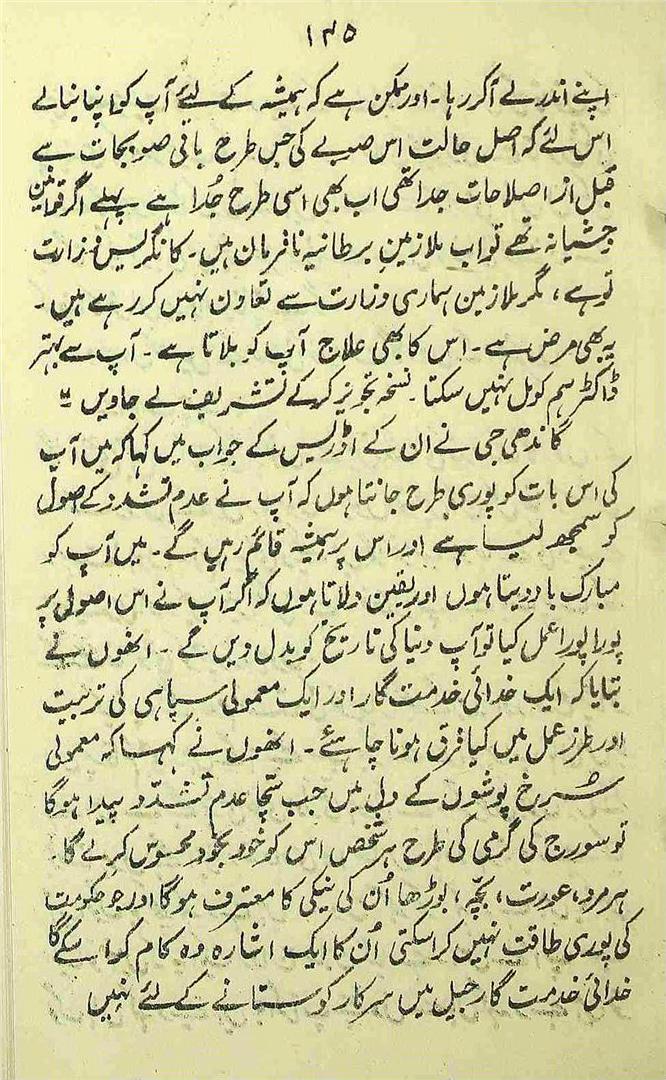 ۱۳۵
اپنے اندر لے آکر رہا۔ اور ممکن ہے کہ ہمیشہ کے لیئے آپ کو اپنا بنالے
اس لئے کہ اصل حالت اس صوبے کی جس طرح باقی صوبجات سے
قبل از اصلاحات جدا تھی اب بھی اسی طرح جُدا ہے پہلے اگر قوانین
وحشیانہ تھے تو اب ملازمینِ برطانیہ نافرمان ہیں۔ کانگریس وزارت
تو ہے، مگر ملازمین ہماری وزارت سے تعاون نہیں کر رہے ہیں۔
یہ بھی مرض ہے۔ اس کا بھی علاج آپ کو بلاتا ہے۔ آپ سے بہتر
ڈاکٹر ہم کو مل نہیں سکتا۔ نسخہ تجویز کرکے تشریف لے جاویں"
گاندھی جی نے ان کے اڈریس کے جواب میں کہا کہ میں آپ
کی اس بات کو پوری طرح جانتا ہوں کہ آپ نے عدم تشدد کے اصول
کو سمجھ لیا ہے اور اس پر ہمیشہ قائم رہیں گے۔ میں آپ کو
مبارک باد دیتا ہوں اور یقین دلاتا ہوں کہ اگر آپ نے اس اصول پر
پورا پورا عمل کیا تو آپ دنیا کی تاریخ کو بدل دیں گے۔ انھوں نے
بتایا کہ ایک خدائی خدمت گار اور ایک معمولی سپاہی کی تربیت
اور طرز عمل میں کیا فرق ہونا چاہئے۔ انھوں نے کہا کہ معمولی
سُرخ پوشوں کے دل میں جب سچّا عدم تشدّد پیدا ہوگا
تو سورج کی گرمی کی طرح ہر شخص اس کو خود بخود محسوس کرے گا۔
ہر مرد، عورت، بچّہ، بوڑھا اُن کی نیکی کا معترف ہوگا اور جو حکومت
کی پوری طاقت نہیں کراسکتی اُن کا ایک اشارہ وہ کام کرا سکے گا
خدائی خدمت گار جیل میں سرکار کو ستانے کے لئے نہیں